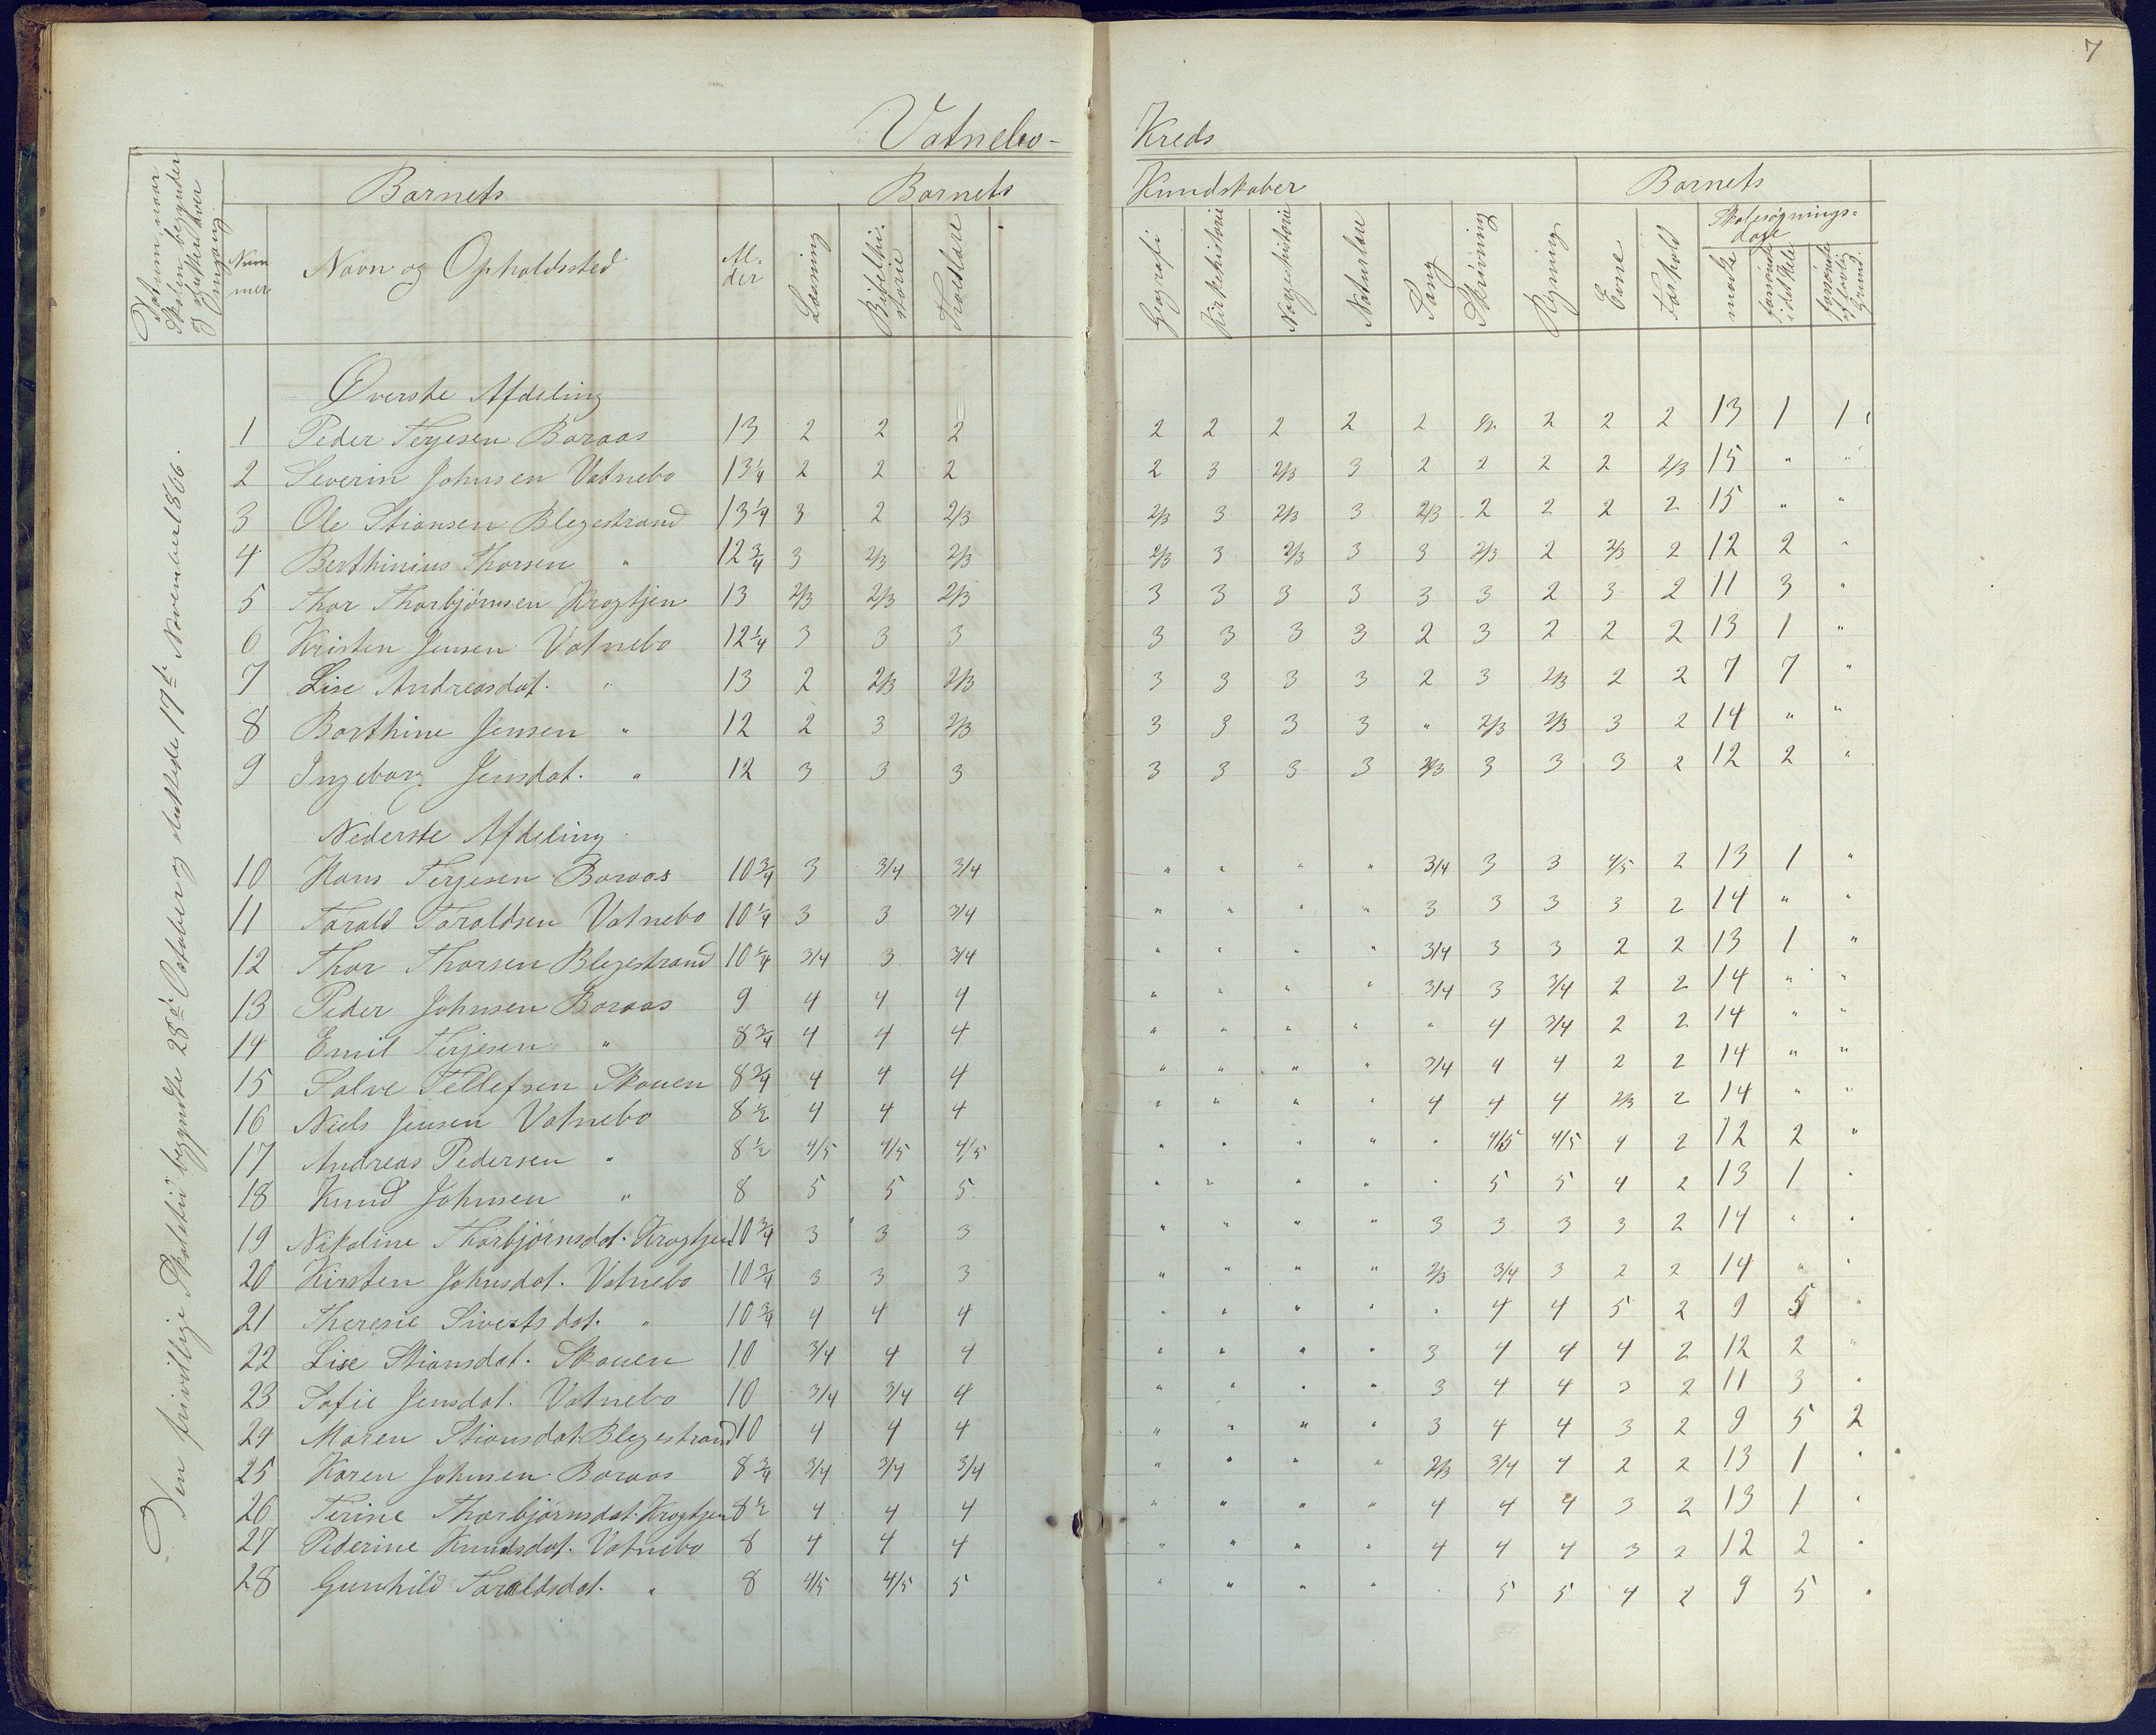 7
Vatnebo- Kreds
Datum naar Skolen begynder og slutter hver Omgang
Barnets
Barnets Kundskaber
Barnets
Skolesøgnings-dage
Num mer
Navn og Opholdssted
Al- der
Læsning
Bibelhi- storie
Troeslære
Geografi
Kirkehistorie
Norgeshistorie
Naturlære
Sang
Skrivning
Regning
Evne
Forhold
mødte
forsømte i det Hele
forsømte af lovlig Grund.
Den frivillige Skoletid begyndte 28de Oktober og sluttede 17de November 1866.
Øverste Afdeling
1 Peder Terjesen Boraas 13 2 2 2 2 2 2 2 2 2 2 2 2 13 1 1
2 Severin Johnsen Vatnebo 13¼ 2 2 2 2 3 2/3 3 2 2 2 2 2/3 15 " "
3 Ole Stiansen Blegestrand 13¼ 3 2 2/3 2/3 3 2/3 3 2/3 2 2 2 2 15 " "
4 Berthinius Thorsen " 12¾ 3 2/3 2/3 2/3 3 2/3 3 3 2/3 2 2/3 2 12 2 "
5 Thor Thorbjørnsen Krogtjen 13 2/3 2/3 2/3 3 3 3 3 3 3 2 3 2 11 3 "
6 Kristen Jensen Vatnebo 12¼ 3 3 3 3 3 3 3 2 3 2 2 2 13 1 "
7 Lise Andreasdat. " 13 2 2/3 2/3 3 3 3 3 2 3 2/3 2 2 7 7 "
8 Borthine Jensen " 12 2 3 2/3 3 3 3 3 " 2/3 2/3 3 2 14 " "
9 Ingeborg Jensdat. " 12 3 3 3 3 3 3 3 2/3 3 3 3 2 12 2 "
Nederste Afdeling
10 Hans Terjesen Boraas 10¾ 3 3/4 3/4 " " " " 3/4 3 3 4/5 2 13 1 "
11 Torald Toraldsen Vatnebo 10¼ 3 3 3/4 " " " " 3 3 3 3 2 14 " "
12 Thor Thorsen Blegestrand 10¼ 3/4 3 3/4 " " " " 3/4 3 3 2 2 13 1 "
13 Peder Johnsen Boraas 9 4 4 4 " " " " 3/4 3 3/4 2 2 14 " "
14 Emil Terjesen " 8¾ 4 4 4 " " " " " 4 3/4 2 2 14 " "
15 Salve Tellefsen Skouen 8¾ 4 4 4 " " " " 3/4 4 4 2 2 14 " "
16 Niels Jensen Vatnebo 8½ 4 4 4 " " " " 4 4 4 2/3 2 14 " "
17 Andreas Pedersen " 8½ 4/5 4/5 4/5 " " " " " 4/5 4/5 4 2 12 2 "
18 Knud Johnsen " 8 5 5 5 " " " " " 5 5 4 2 13 1 "
19 Nikoline Thorbjørnsdat. Krogtjen 10¾ 3 3 3 " " " " 3 3 3 3 2 14 " "
20 Kirsten Johnsdat. Vatnebo 10¾ 3 3 3 " " " " 2/3 3/4 3 2 2 14 " "
21 Theresie Sivertsdat. " 10¾ 4 4 4 " " " " " 4 4 5 2 9 5 "
22 Lise Stiansdat. Skouen 10 3/4 4 4 " " " " 3 4 4 4 2 12 2 "
23 Sofie Jensdat. Vatnebo 10 3/4 3/4 4 " " " " 3 4 4 3 2 11 3 "
24 Maren Stiansdat. Blegestrand 10 4 4 4 " " " " 3 4 4 3 2 9 5 2
25 Karen Johnsen Boraas 8¾ 3/4 3/4 3/4 " " " " 2/3 3/4 4 2 2 13 1 "
26 Terine Thorbjørnsdat. Krogtjen 8½ 4 4 4 " " " " 4 4 4 3 2 13 1 "
27 Pederine Knudsdat. Vatnebo 8 4 4 4 " " " " 4 4 4 3 2 12 2 "
28 Gunhild Toraldsdat. " 8 4/5 4/5 5 " " " " " 5 5 4 2 9 5 "